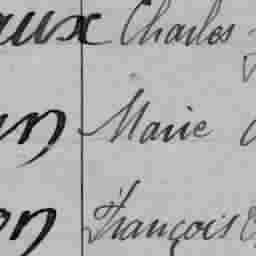 aux Charles
Marie
on François